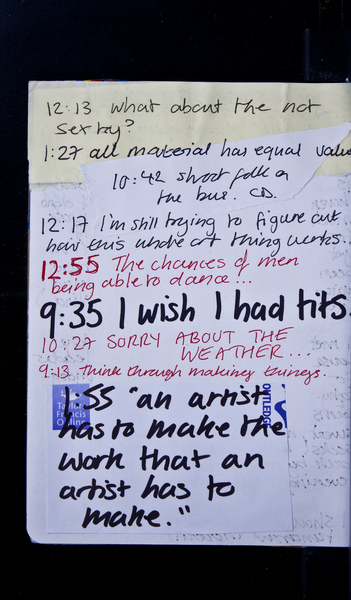 12:13 what about the not
sex try?
1:27 all material has equal value
10:42 shoot folk on
the bus. CD.
12:17 I'm still trying to figure out
how this whole art thing works...
12:55 The chances of men
being able to dance...
9:35 I wish I had tits.
10:27 SORRY ABOUT THE
WEATHER...
9:13 Think through making things.
1:55 "an artist
has to make the
work that an
artist has to
make."
Taylor
Francis
Online
ROUTLEDGE